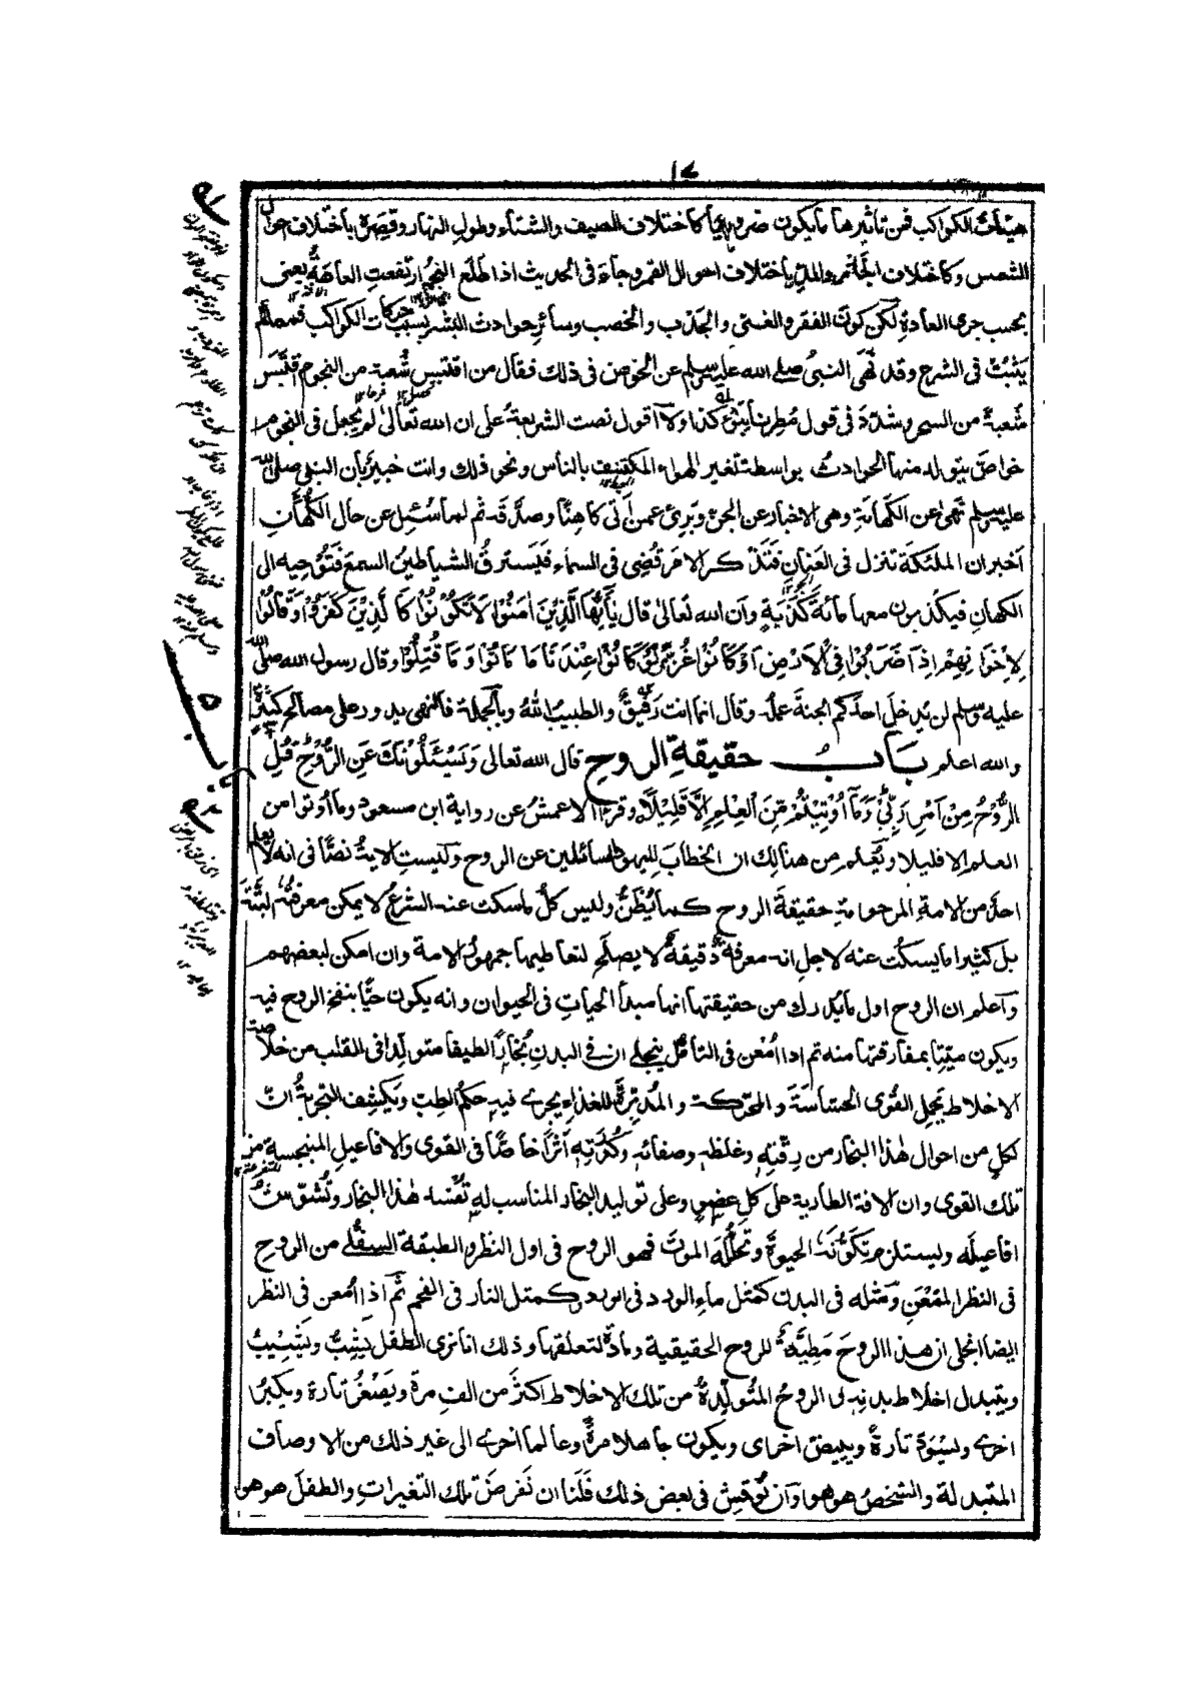 ١٧
هيئات الكواكب فمن تاثيرها ما يكون ضروريا كاختلاف الصيف والشتاء وطول النهار وقصره باختلاف احوال
الشمس وكاختلاف الجزر والمد باختلاف احوال القمر وجاء فى الحديث اذا طلع النجم ارتفعت العاهة يعنى
بحسب جرى العادة لكن كون الفقر والغنى والجدب والخصب وسائر حوادث البشر بسبب حركات الكواكب فمما لم
يثبت فى الشرع وقد نهى النبى صلى الله عليه وسلم عن الخوض فى ذلك فقال من اقتبس شعبة من النجوم اقتبس
شعبة من السحر وشدد فى قول مطرنا بنوء كذا ولا اقول نصت الشريعة على ان الله تعالى لم يجعل فى النجوم
خواص يتولد منها الحوادث بواسطة تغير الهواء المكتنف بالناس ونحو ذلك وانت خبير بان النبى صلى الله
عليه وسلم نهى عن الكهانة وهى الاخبار عن الجن وبرئ عمن اتى كاهنا وصدقه ثم لما سئل عن حال الكهان
اخبر ان الملئكة تنزل فى العنان فتذكر الامر قضى فى السماء فيسترق الشياطين السمع فتوحيه الى
الكهان فيكذبون معها مائة كذبة وان الله تعالى قال يأيها الذين امنوا لا تكونوا كالذين كفروا وقالوا
لاخوانهم اذا ضربوا فى الارض او كانوا غزى لو كانوا عندنا ما ماتوا وما قتلوا وقال رسول الله صلى الله
عليه وسلم لن يدخل احدكم الجنة عمله وقال انما انت رفيق والطبيب الله وبالجملة فالنهى يدور على مصالح كثيرة
والله اعلم باب حقيقة الروح قال الله تعالى ويسئلونك عن الروح قل
الروح من امر ربى وما اوتيتم من العلم الا قليلا وقرأ الاعمش عن رواية ابن مسعود وما اوتوا من
العلم الا قليلا ويعلم من هنالك ان الخطاب لليهود السائلين عن الروح وليست الاية نصا فى انه لا يعلم
احد من الامة المرحومة حقيقة الروح كما يظن وليس كل ما سكت عنه الشرع لا يمكن معرفته البتة
بل كثيرا ما يسكت عنه لاجل انه معرفة دقيقة لا يصلح لتعاطيها جمهور الامة وان امكن لبعضهم
واعلم ان الروح اول ما يدرك من حقيقتها انها مبدأ الحيات فى الحيوان وانه يكون حيا بنفخ الروح فيه
ويكون ميتا بمفارقتها منه ثم اذا امعن فى التأمل ينجلى ان فى البدن بخارا لطيفا متولدا فى القلب من خلاصة
الاخلاط يحمل القوى الحساسة والمحركة والمدبرة للغذاء يجرى فيه حكم الطب وتكشف التجربة ان
لكل من احوال هذا البخار من رقته وغلظه وصفائه وكدرته اثرا خاصا فى القوى والافاعيل المنبجسة من
تلك القوى وان الافة الطارية على كل عضو وعلى توليد البخار المناسب له تفسد هذا البخار وتشوش
افاعيله ويستلزم تكونه الحيوة وتحلله الموت فهو الروح فى اول النظر والطبقة السفلى من الروح
فى النظر الممعن ومثله فى البدن كمثل ماء الورد فى الورد وكمثل النار فى الفحم ثم اذا امعن فى النظر
ايضا انجلى ان هذا الروح مطية للروح الحقيقية ومادة لتعلقها وذلك انا نرى الطفل يشب ويشيب
ويتبدل اخلاط بدنه والروح المتولدة من تلك الاخلاط اكثر من الف مرة ويصغر تارة ويكبر
اخرى ويسود تارة ويبيض اخرى ويكون جاهلا مرة وعالما اخرى الى غير ذلك من الاوصاف
المتبدلة والشخص هو هو وان نوقش فى بعض ذلك فلنا ان نفرض تلك التغيرات والطفل هو هو